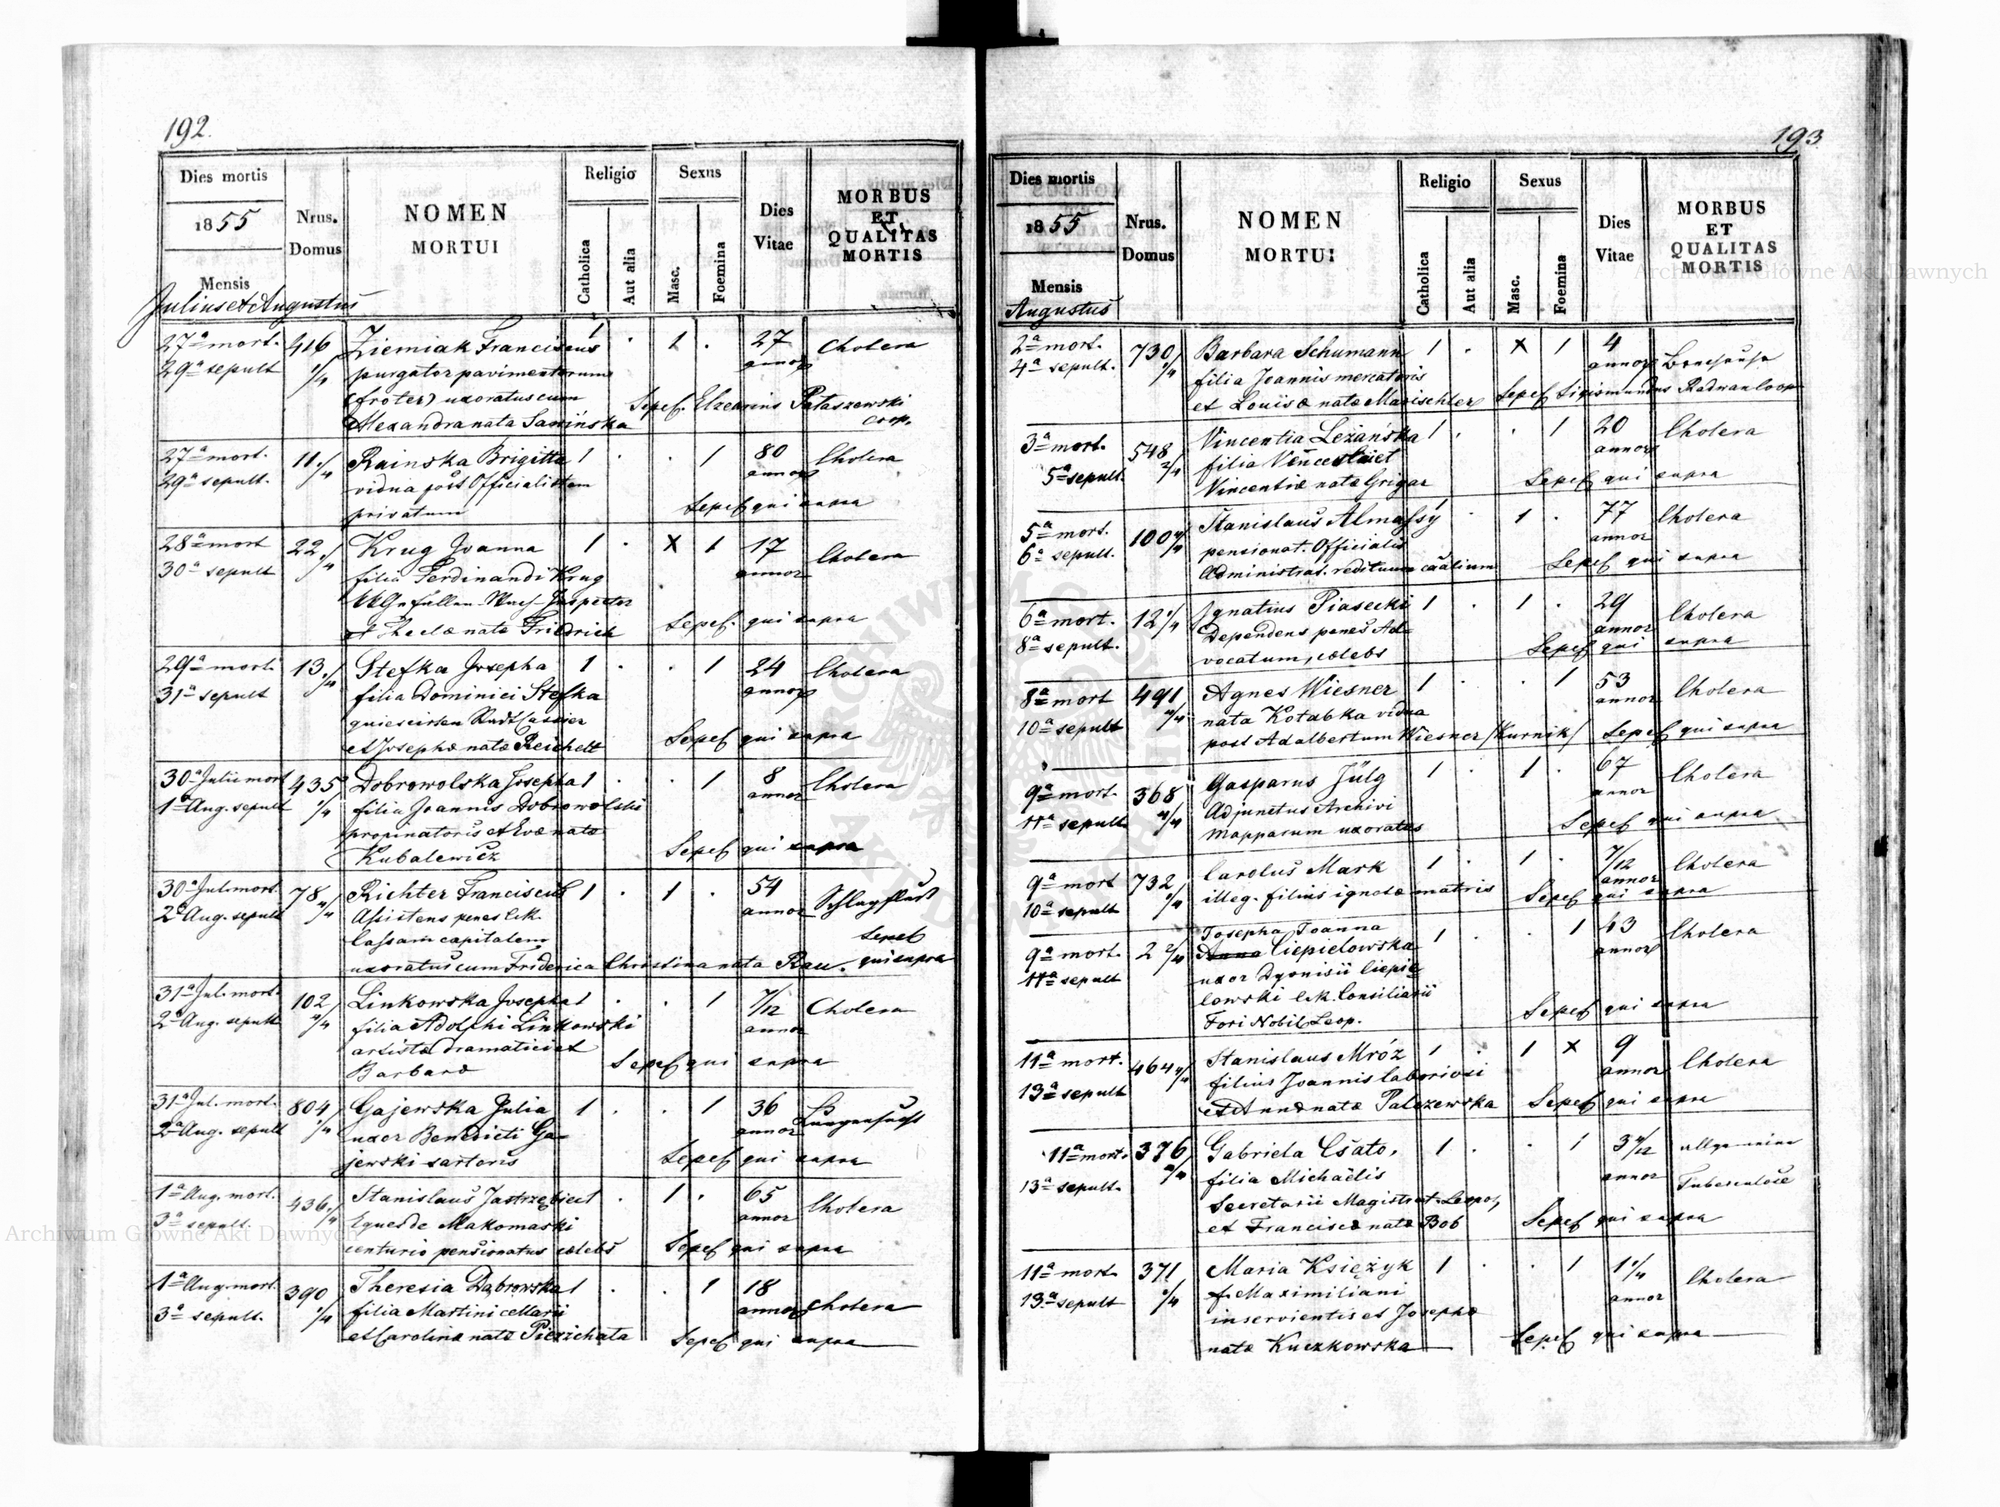 192.
Dies mortis
1855
Mensis
Julius et Augustus
Nrus.
Domus
NOMEN
MORTUI
Religio
Catholica
Aut alia
Sexus
Masc.
Foemina
Dies
Vitae
MORBUS
ET
QUALITAS
MORTIS
27ª mort. 416 Ziemiak Franciscus 1 . 1 . 27 Cholera
29ª sepult 1/4 purgator pavimentorum annor
(froter) uxoratus cum Sepel. Elzearius Pataszewski
Alexandra nata Sawińska coop.
27ª mort. 11. Rainska Brigitta 1 . . 1 80 Cholera
29ª sepult. /4 vidua post Officialistam annor
privatum Sepel qui supra
28ª mort 22. Krug Joanna 1 . X 1 17 Cholera
30ª sepult /4 filia Ferdinandi Krug annor
Inspector
et Theclæ natæ Friedrich Sepel. qui supra
29ª mort. 13. Stefka Josepha 1 . . 1 24 Cholera
31ª sepult /4 filia Dominici Stefka annor
et Josephæ natæ Reichelt Sepel qui supra
30ª Julii mort 435 Dobrowolska Josepha 1 . . 1 8 Cholera
1ª Aug. sepult 1/4 filia Joannis Dobrowolski annor
propinatoris et Evæ natæ
Kubalewicz Sepel qui supra
30ª Jul. mort. 78 Richter Franciscus 1 . 1 . 54 Schlagfluß
2ª Aug. sepult /4 Assistens penes c.k. annor
Cassam capitalem Sepel
uxoratus cum Friderica Christina nata Rau. qui supra
31ª Jul. mort. 102 Linkowska Josepha 1 . . 1 7/12 Cholera
2ª Aug. sepult /4 filia Adolphi Linkowski annor
artistæ dramatici et Sepel qui supra
Barbaræ
31ª Jul. mort. 804 Gajewska Julia 1 . . 1 36 Lungensucht
2ª Aug. sepult 1/4 uxor Benedicti Ga- annor
jewski sartoris Sepel qui supra
1ª Aug. mort. 436 Stanislaus Jastrzębiec 1 . 1 . 65 Cholera
3ª sepult. /4 Eques de Makomaski annor
centurio pensionatus cælebs Sepel qui supra
1ª Aug. mort. 390 Theresia Dąbrowska 1 . . 1 18 Cholera
3ª sepult. 1/4 filia Martini et Mariæ annor
et Carolinæ natæ Sepel qui supra
193
Dies mortis
1855
Mensis
Augustus
Nrus.
Domus
NOMEN
MORTUI
Religio
Catholica
Aut alia
Sexus
Masc.
Foemina
Dies
Vitae
MORBUS
ET
QUALITAS
MORTIS
2ª mort. 730 Barbara Schumann 1 . X 1 4
4ª sepult. 1/4 filia Joannis mercatoris annor
et Louisæ natæ Marischler Sepel Sigismundus Radwan coop
3ª mort. 548 Vincentia Leżańska 1 . . 1 20 Cholera
5ª sepult. 2/4 filia Vincentii et annor
Vincentiæ natæ Grigar Sepel qui supra
5ª mort. 100 Stanislaus Almassy 1 . 1 . 77 Cholera
6ª sepult. 4/4 pensionat. Officialis annor
Administrat. redituum cäälium Sepel qui supra
6ª mort. 12 1/4 Ignatius Piasecki 1 . 1 . 29 Cholera
8ª sepult. Dependens penes Ad- annor
vocatum, cælebs Sepel qui supra
8ª mort 491 Agnes Wiesner 1 . . 1 53 Cholera
10ª sepult /4 nata Kotabka vidua annor
post Adalbertum Wiesner /Kurnik/ Sepel qui supra
9ª mort. 368 Gasparus Jülg 1 . 1 . 67 Cholera
11ª sepult. 4/4 Adjunctus Archivi annor
mapparum uxoratus Sepel qui supra
9ª mort 732 Carolus Mark 1 . 1 . 7/12 Cholera
10ª sepult 1/4 illeg. filius ignotæ matris annor Sepel qui supra
Josepha Joanna
9ª mort. 2 2/4 Anna Ciepielowska 1 . . 1 43 Cholera
11ª sepult uxor Dyonisii Ciepie annor
lowski c.k. Consiliarii
Fori Nobil. Leop. Sepel qui supra
11ª mort. 464 4/4 Stanislaus Mróz 1 . 1 X 9 Cholera
13ª sepult filius Joannis laboriosi annor
et Annæ natæ Palczewska Sepel qui supra
11ª mort. 376 Gabriela Csato, 1 . . 1 3 /12 allgemeine
13ª sepult. /4 filia Michaëlis annor Tuberculose
Secretarii Magistrat. Leopol,
et Franciscæ natæ Bob Sepel qui supra
11ª mort. 371 Maria Księżyk 1 . . 1 1 1/4 Cholera
13ª sepult 1/4 f. Maximiliani annor
inservientis et Josephæ
natæ Kuczkowska Sepel qui supra
Archiwum Główne Akt Dawnych
Archiwum Główne Akt Dawnych
ARCHIWUM GŁÓWNE AKT DAWNYCH